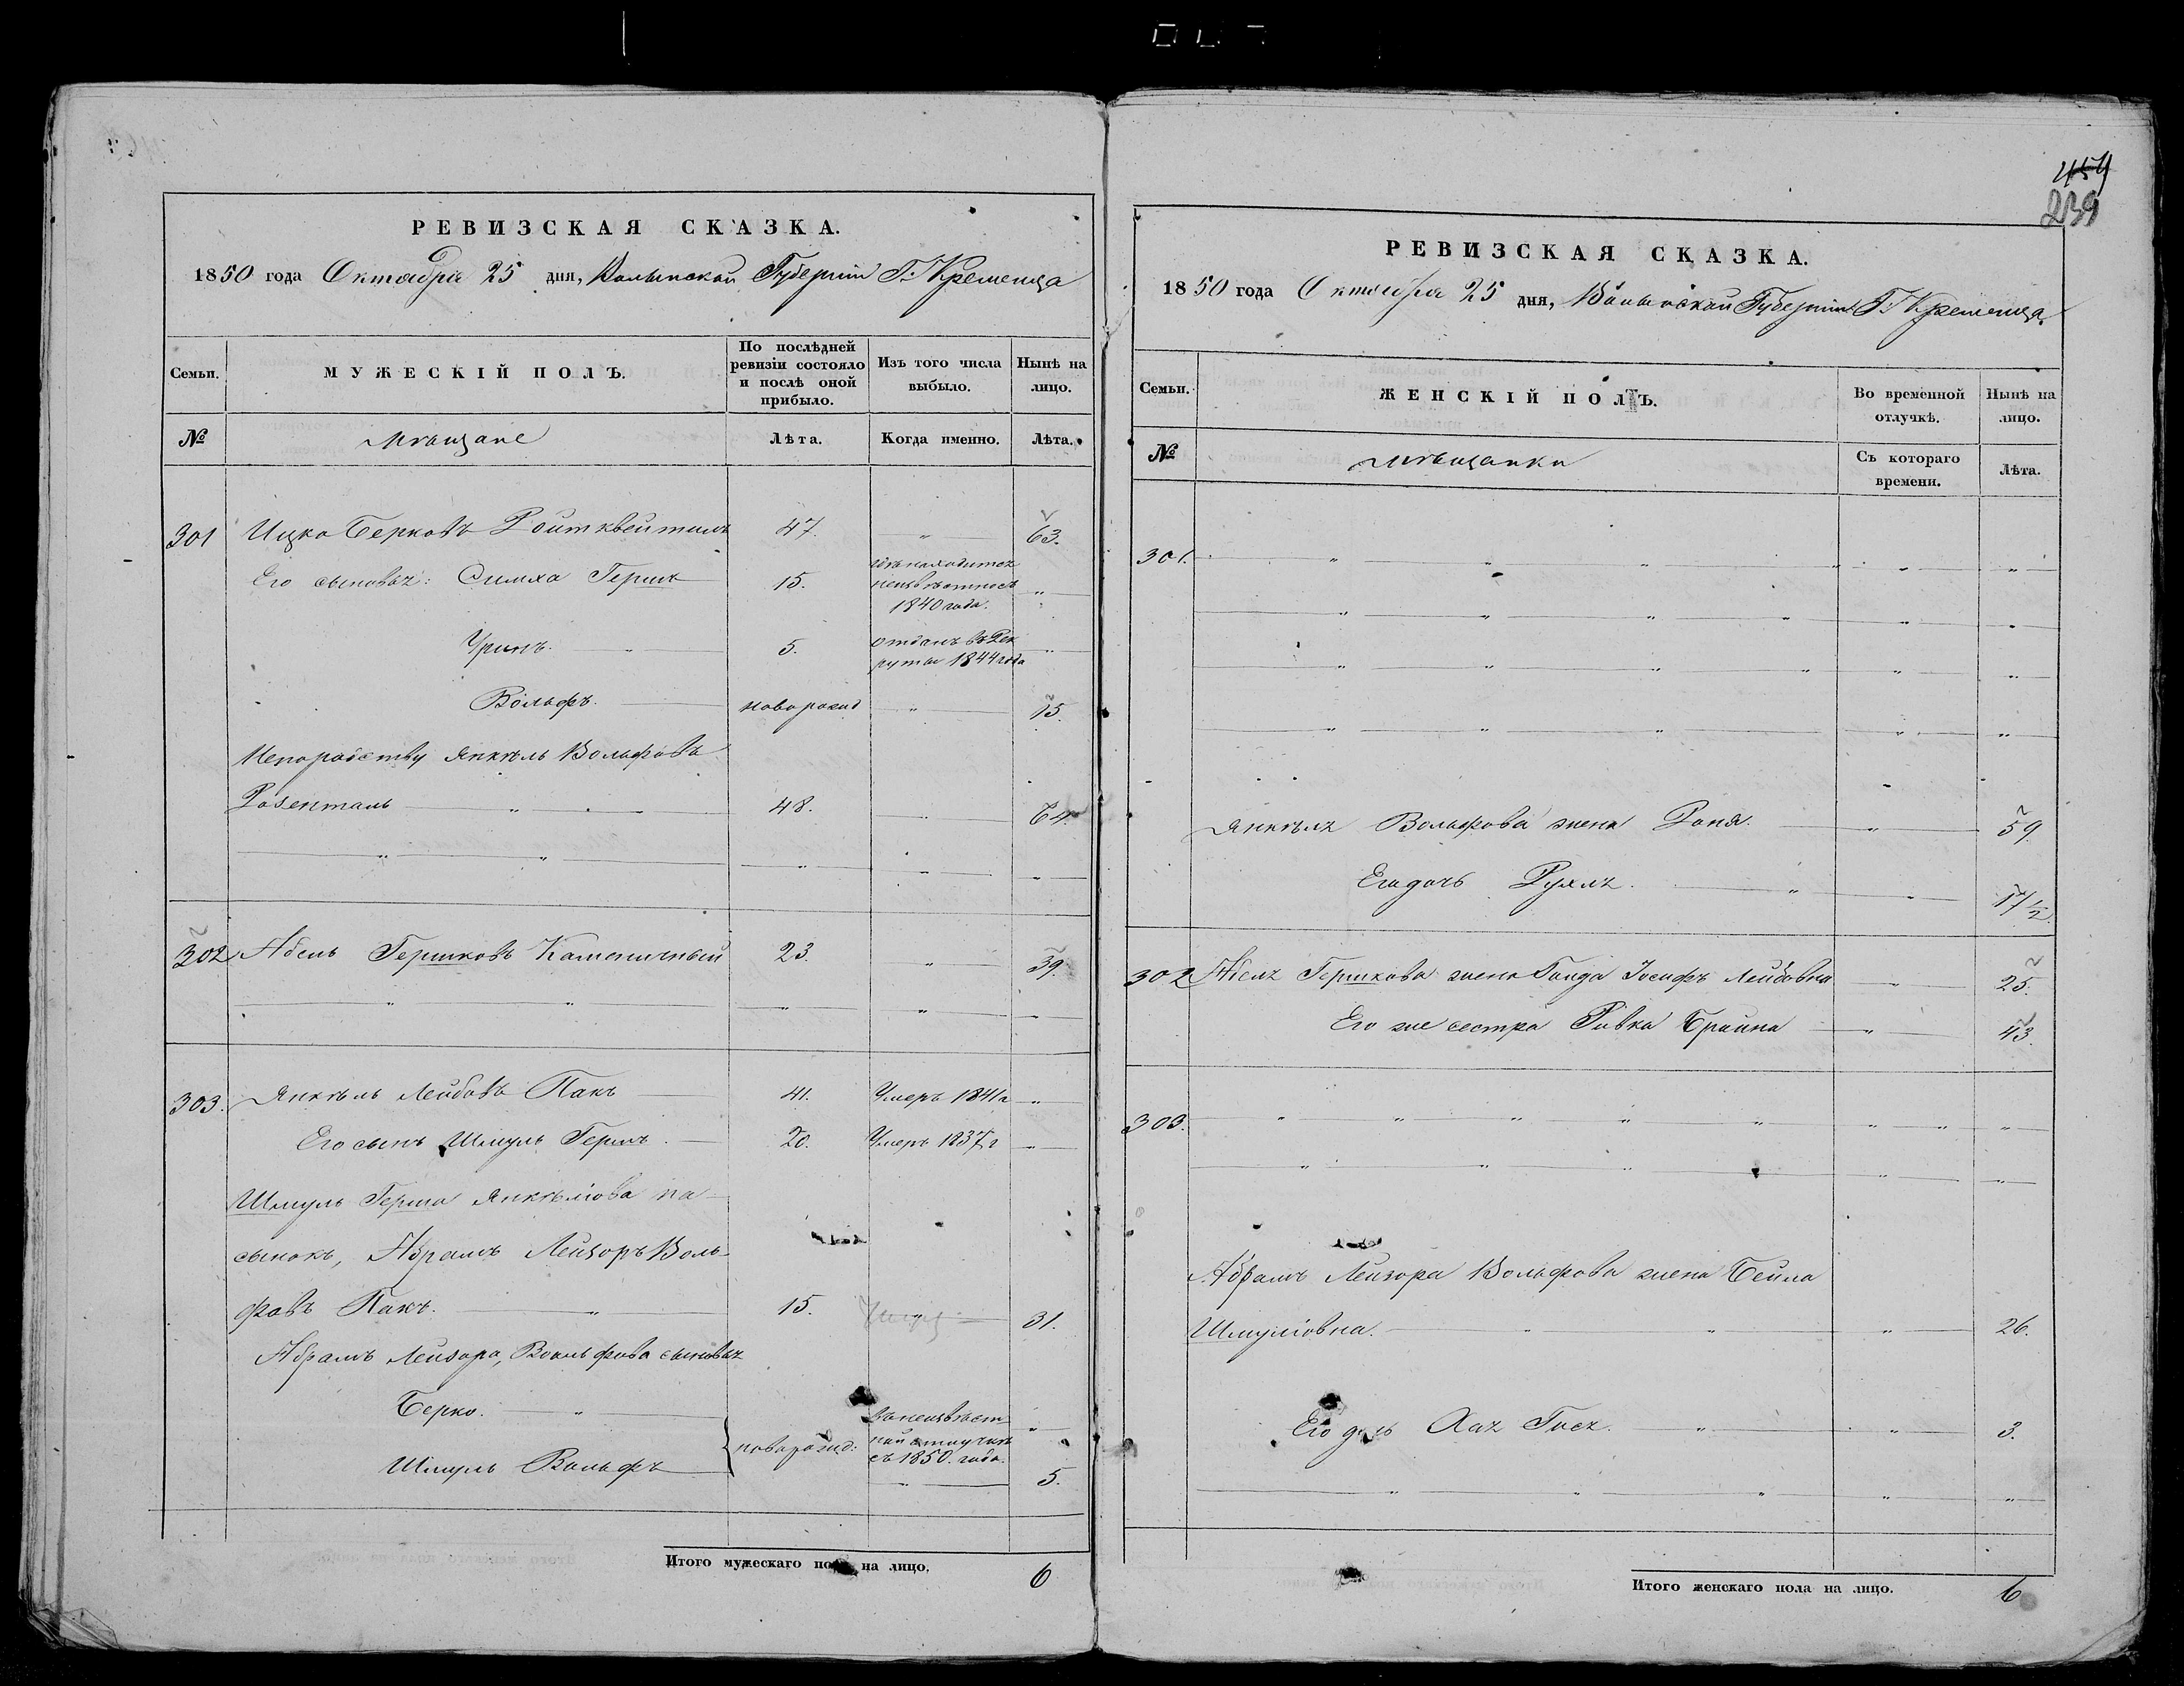 РЕВИЗСКАЯ СКАЗКА.
1850 года Октября 25 дня, Волынской Губернiи Г. Кременца
Семьи. МУЖЕСКIЙ ПОЛЪ. По послѣдней ревизiи состояло и послѣ оной прибыло. Изъ того числа выбыло. Нынѣ на лицо.
№ Мѣщане Лѣта. Когда именно. Лѣта.
301 Ицко Берковъ Ройтквейтиль 47. „ 63.
Его сыновья: Симха Гершъ 15. гдѣ находится неизвѣстно съ 1840 года. „
Уринъ. „ 5. отданъ въ Рекруты 1844 года „
Вольфъ. новорожд „ 15.
Непородству Янкѣль Вольфовъ
Розенталь „ 48. „ 64.
„ „ „ „ „
302 Абель Гершковъ Каменичный 23. „ 39.
„ „ „ „ „
303. Янкѣль Лейбовъ Пакъ 41. Умеръ 1841 г „
Его сынъ Шмуль Гершъ. 20. Умеръ 1837 г „
Шмуль Герша Янкѣлiова па-
сынокъ, Абрамъ Лейзоръ Воль-
фовъ Пакъ. „ 15. „ 31.
Абрамъ Лейзора, Вольфова сыновья
Берко. „ новорожд: въ неизвѣстной отлучкѣ съ 1850. года. „
Шмуль Вольфъ „ 5.
Итого мужескаго пола на лицо. 6
459
239
РЕВИЗСКАЯ СКАЗКА.
1850 года Октября 25 дня, Волынской Губернiи Г. Кременца
Семьи. ЖЕНСКIЙ ПОЛЪ. Во временной отлучкѣ. Нынѣ на лицо.
№ Мѣщанки Съ котораго времени. Лѣта.
301. „ „ „ „ „ „
„ „ „ „ „
„ „ „ „ „
„ „ „ „ „
Янкѣля Вольфова жена Роня. „ 59.
Его дочь Рухля. „ „ 17 1/2.
302 Абеля Гершкова жена Гольда Iосифъ Лейбовна „ 25.
Его же сестра Ривка Брайна „ 43.
303. „ „ „ „ „ „ „ „
„ „ „ „ „ „
Абрамъ Лейзора Вольфова жена Бейла
Шмулiовна. „ „ „ 26.
Его дочь Хая Гися. „ „ 3.
„ „ „ „ „
Итого женскаго пола на лицо. 6